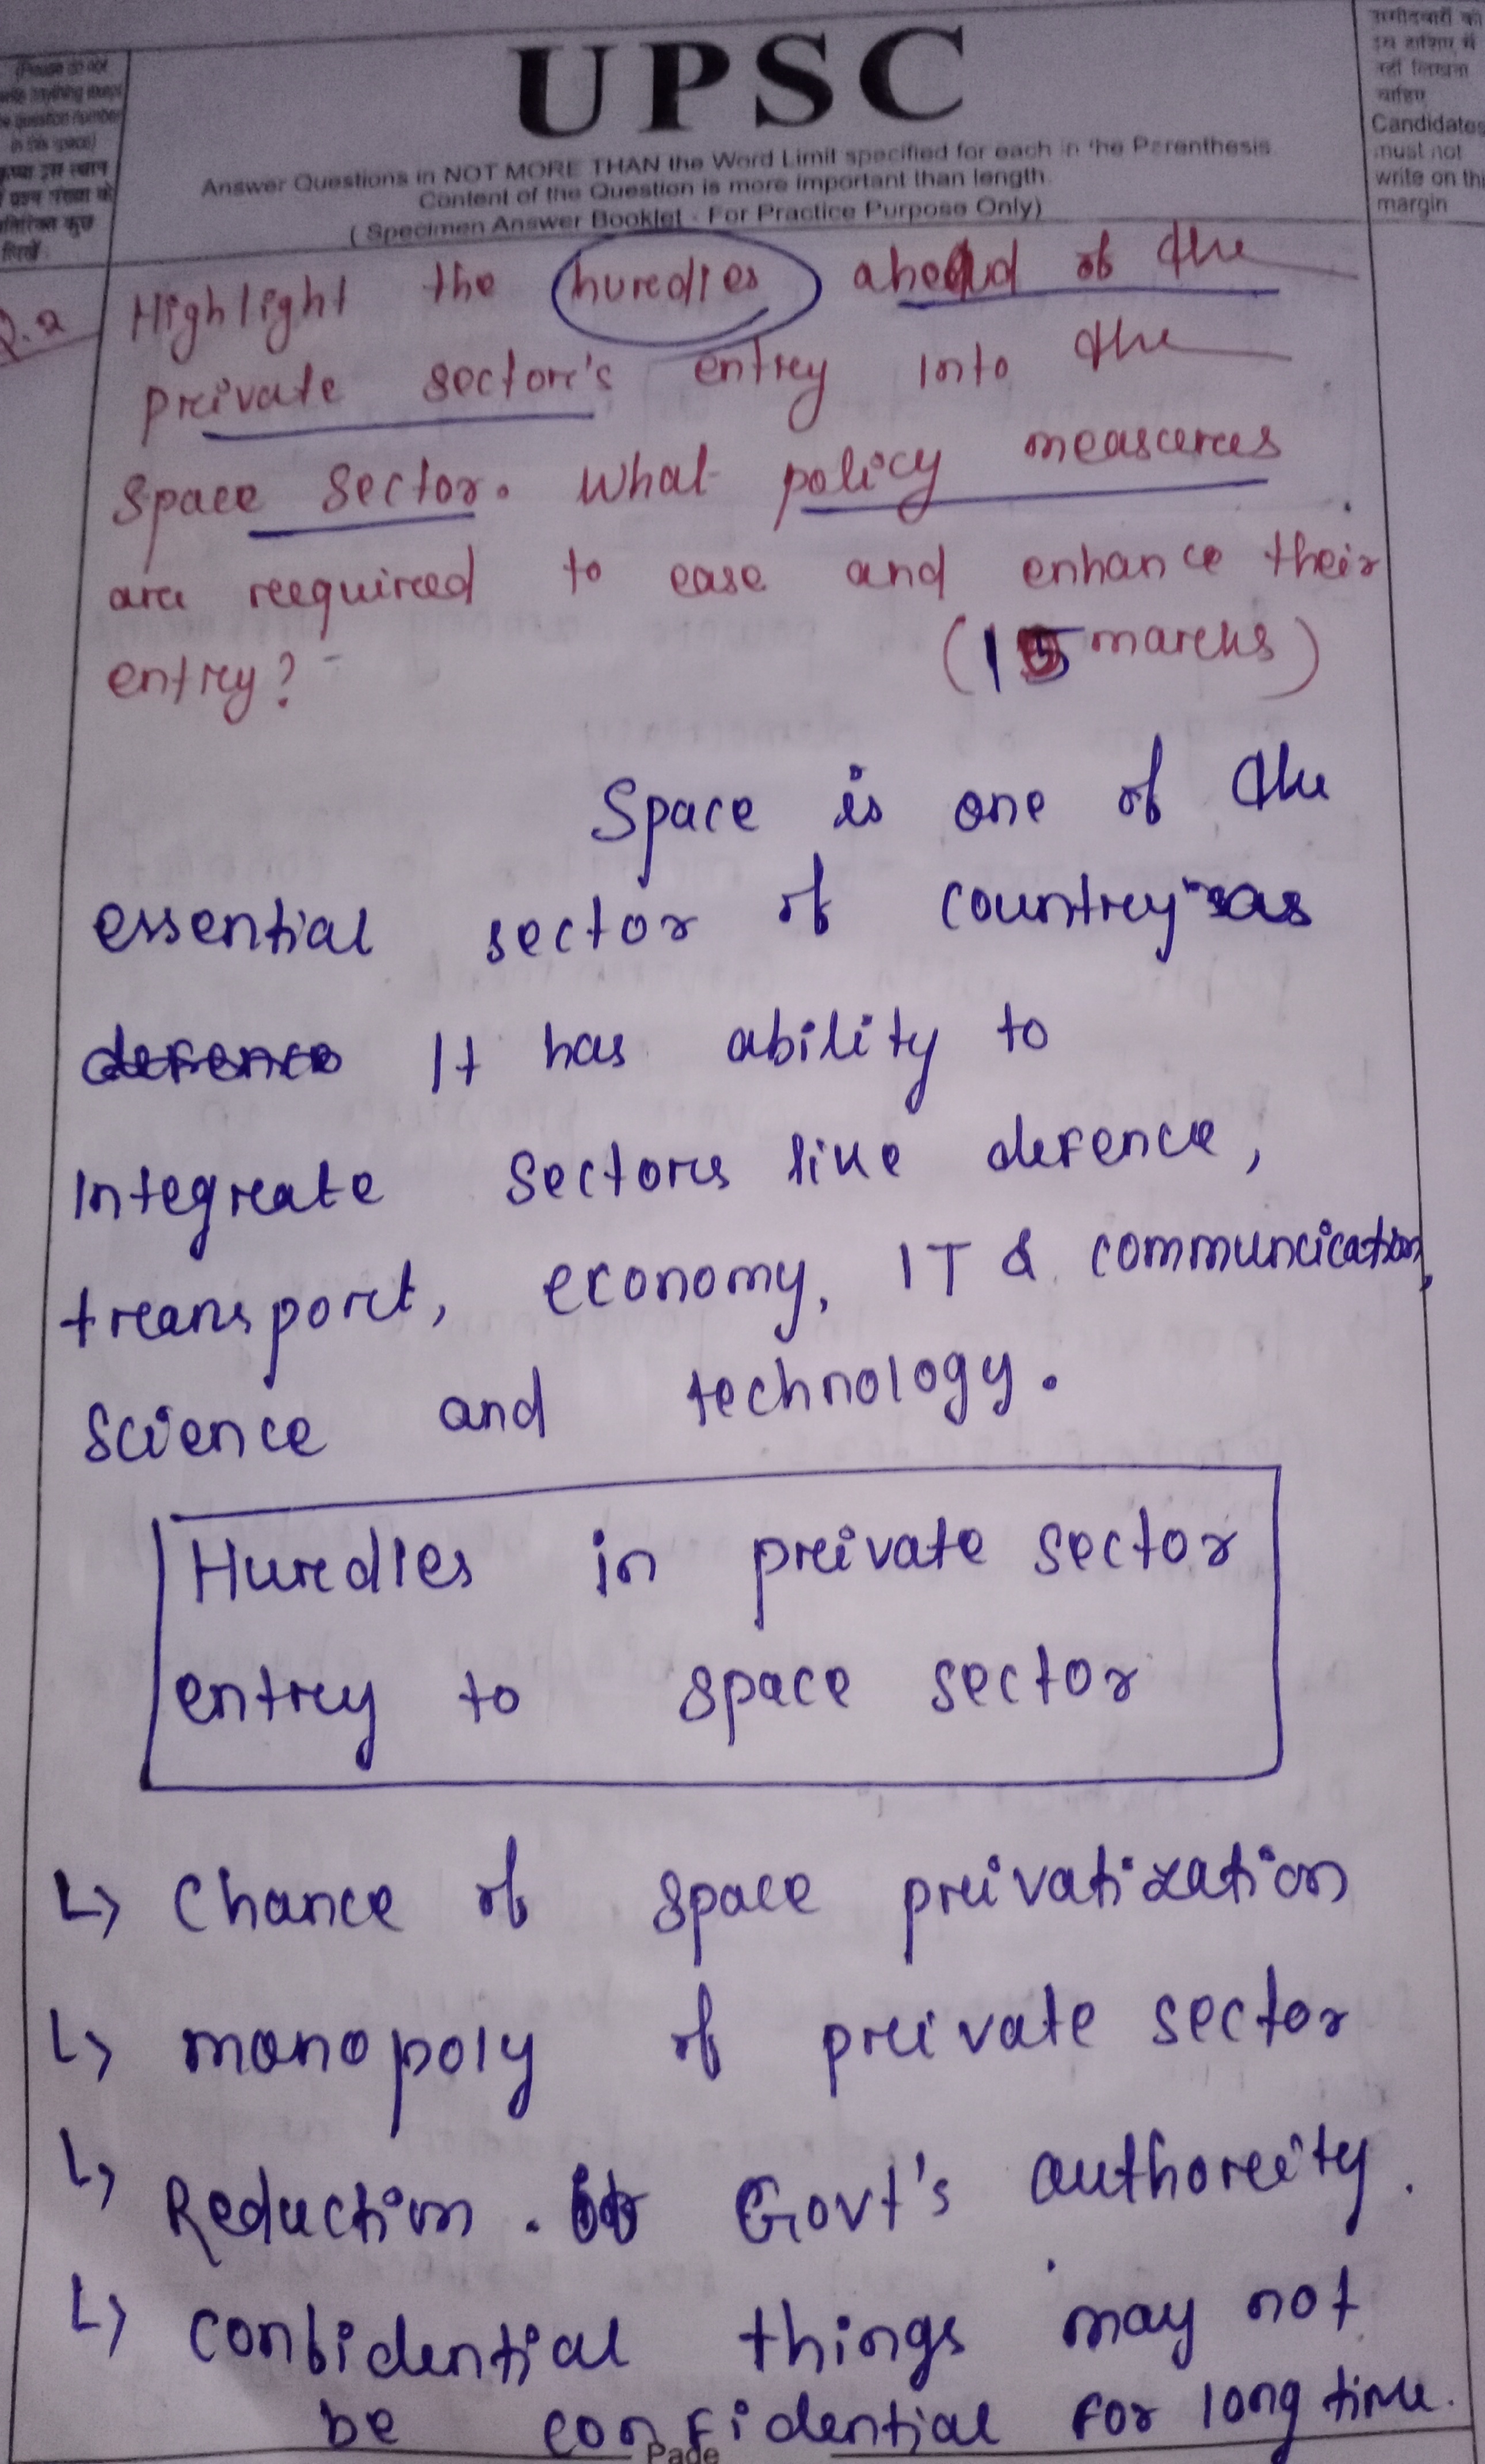 (Please do not
write anything except
the question number
in this space)
UPSC
Answer Questions in NOT MORE THAN the Word Limit specified for each in the Parenthesis.
Content of the Question is more important than length.
( Specimen Answer Booklet - For Practice Purpose Only)
उम्मीदवारों को
इस हाशिए में
नहीं लिखना
चाहिए
Candidates
must not
write on this
margin
Q.2
Highlight the hurdles ahead of the
private sector's entry into the
space sector. What policy measures
are required to ease and enhance their
entry? (15 marks)
Space is one of the
essential sector of country as
defence It has ability to
integrate sectors like defence,
transport, economy, IT & communcication,
science and technology.
Hurdles in private sector
entry to space sector
↳ Chance of space privatization
↳ monopoly of private sector
↳ Reduction . Govt's authority.
↳ confidential things may not
be confidential for long time.
Page